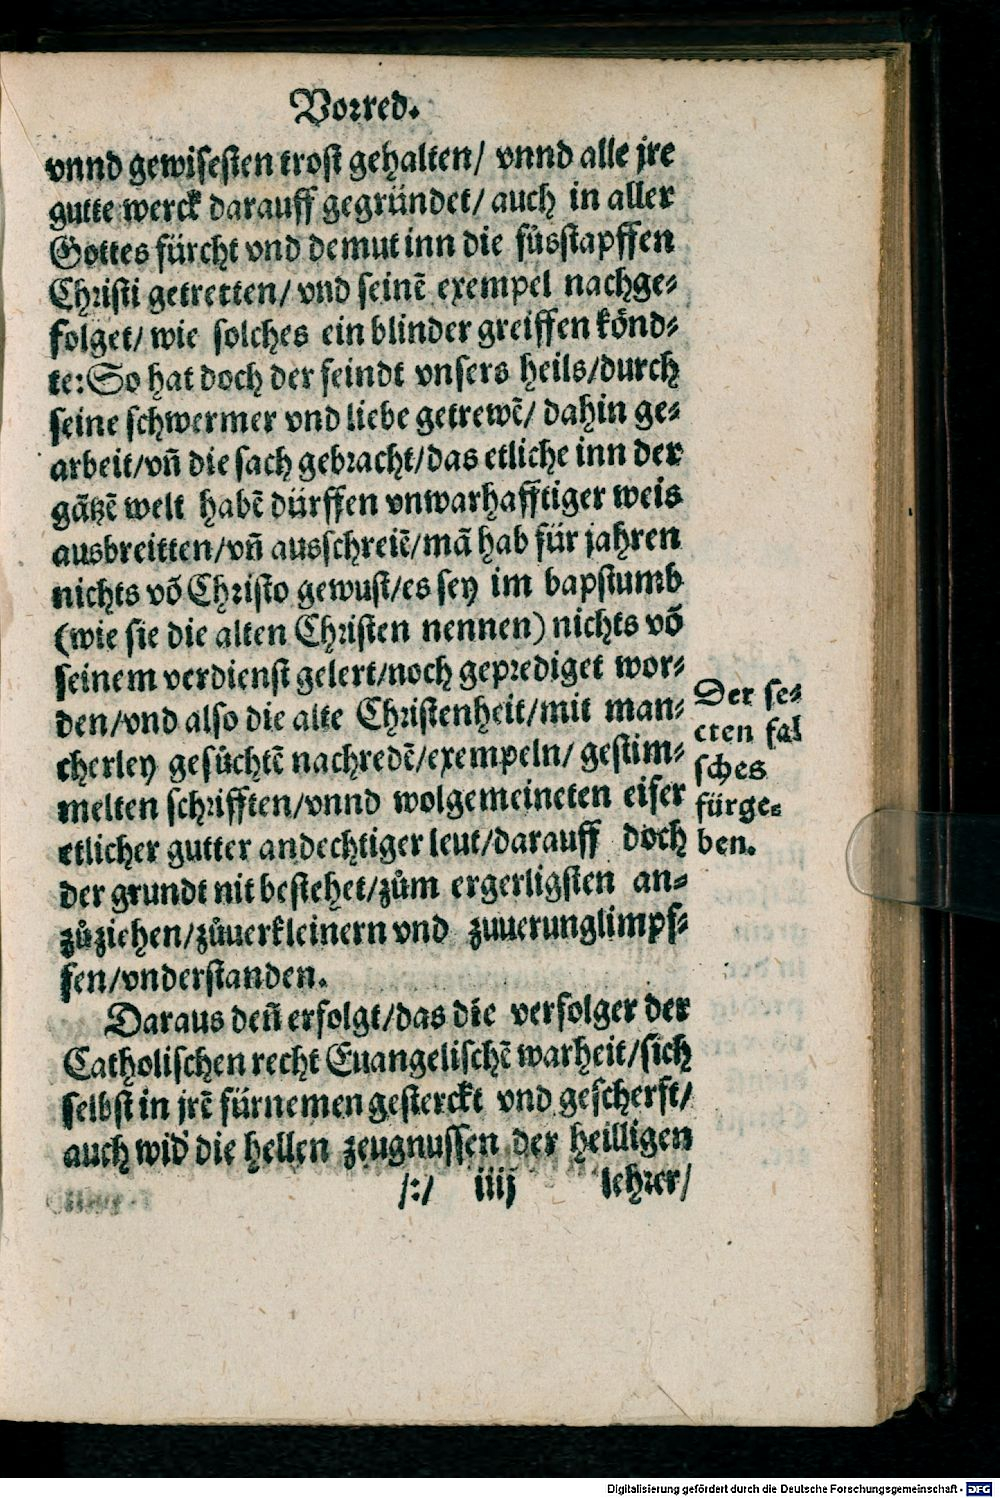 Vorred.
vnnd gewisesten trost gehalten/ vnnd alle jre
gutte werck darauff gegründet/ auch in aller
Gottes fürcht vnd demut inn die füsstapffen
Christi getretten/ vnd seinē exempel nachge⸗
folget/ wie solches ein blinder greiffen könd⸗
te: So hat doch der feindt vnsers heils/durch
seine schwermer vnd liebe getrewē/ dahin ge⸗
arbeit/vñ die sach gebracht/das etliche inn der
gātzē welt habē dürffen vnwarhafftiger weis
ausbreitten/vñ ausschreiē/mā hab für jahren
nichts vō Christo gewust/es sey im bapstumb
(wie sie die alten Christen nennen) nichts vō
seinem verdienst gelert/noch geprediget wor⸗
den/vnd also die alte Christenheit/mit man⸗
cherley gesůchtē nachredē/exempeln/ gestim⸗
melten schrifften/vnnd wolgemeineten eifer
etlicher gutter andechtiger leut/darauff doch
der grundt nit bestehet/zům ergerligsten an⸗
zůziehen/zůuerkleinern vnd zuuerunglimpf⸗
fen/vnderstanden.
Daraus deñ erfolgt/das die verfolger der
Catholischen recht Euangelischē warheit/sich
selbst in jrē fürnemen gesterckt vnd gescherft/
auch wid' die hellen zeugnussen der heilligen
/:/ iiij lehrer/
Der se⸗
cten fal
sches
fürge⸗
ben.
Digitalisierung gefördert durch die Deutsche Forschungsgemeinschaft - DFG